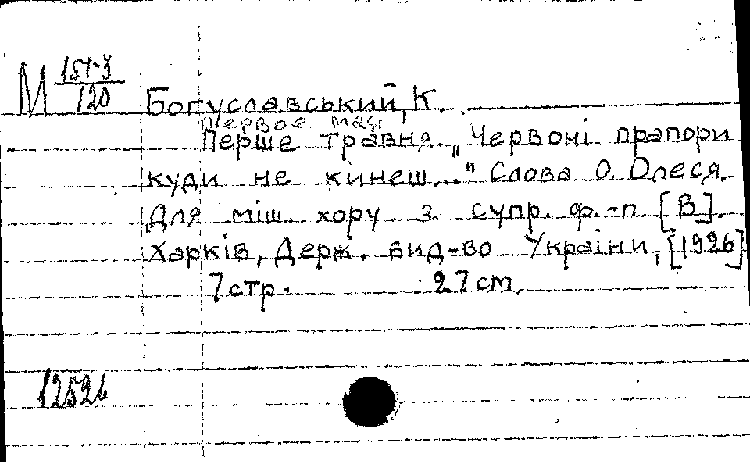 М 151-3/120
Богуславський, К.
Первое мая
Перше травня. „Червоні прапори
куди не кинеш..." Слова О. Олеся.
Для міш. хору з супр. ф.-п. [В].
Харків, Держ. вид-во України, [1926]
7 стр. 27 cm.
12526